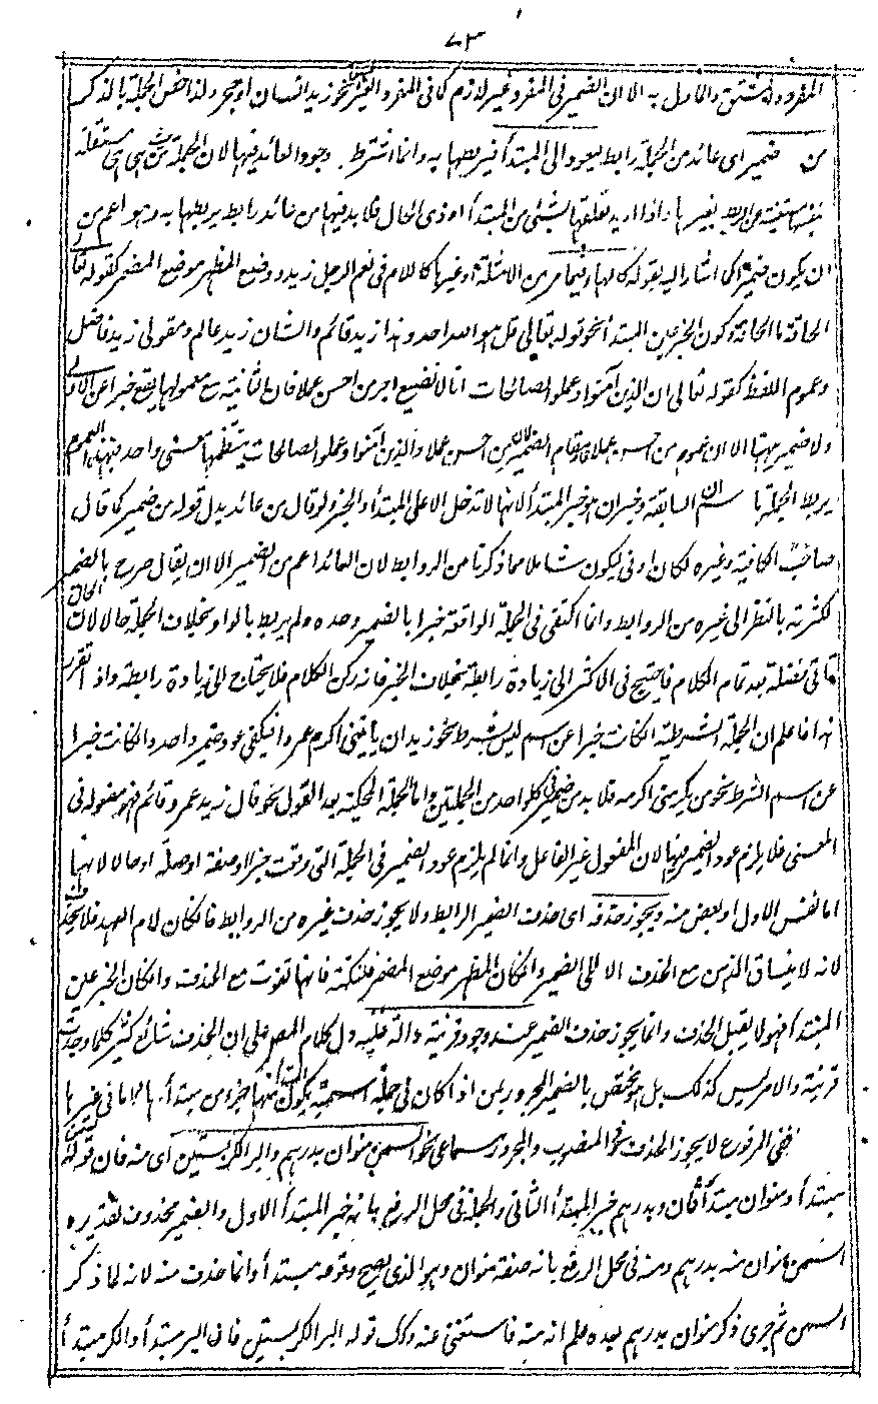 ٧٣
المفرد والمشتق والماول به الا ان الضمير فى المفرد غير لازم كما فى المفرد الغير المشتق نحو زيد انسان او حجر ولذا خص الجملة بالذكر
من ضمير اى عائد من الجملة رابط يعود الى المبتدأ ليربطها به وانما اشترط وجود العائد فيها لان الجملة من حيث هى هى مستقلة
بنفسها مستغنية عن الربط بغيرها واذا اريد تعلقها بشئ من المبتدأ او ذى الحال فلا بد فيها من عائد رابط يربطها به وهو اعم من
ان يكون ضميرا كما اشار اليه بقوله كما لها وفيما مر من الامثلة او غيرها كاللام فى نعم الرجل زيد ووضع المظهر موضع المضمر كقوله تعالى
الحاقة ما الحاقة وكون الخبر عين المبتدأ نحو قوله تعالى قل هو الله احد وهذا زيد قائم والشان زيد عالم ومقولى زيد فاضل
وعموم اللفظ كقوله تعالى ان الذين آمنوا وعملوا الصالحات انا لا نضيع اجر من احسن عملا فان الثانية مع معمولها يقع خبرا عن الاولى
ولا ضمير ههنا الا ان عموم من احسن عملا قام مقام الضمير لان من احسن عملا والذين آمنوا وعملوا الصالحات ينتظمها معنى واحد فبهذا العموم
يربط الجملة باسم ان السابقة وخبر ان هو خبر المبتدأ لانها لا تدخل الا على المبتدأ والخبر ولو قال من عائد بدل قوله من ضمير كما قال
صاحب الكافية وغيره لكان اوفى ليكون شاملا مما ذكرنا من الروابط لان العائد اعم من الضمير الا ان يقال صرح بالضمير
لكثرته بالنظر الى غيره من الروابط وانما اكتفى فى الجملة الواقعة خبرا بالضمير وحده ولم يربط بالواو بخلاف الجملة حالا لان الحال
تاتى فضلة بعد تمام الكلام فاحتيج فى الاكثر الى زيادة رابطة بخلاف الخبر فانه ركن الكلام فلا يحتاج الى زيادة رابطة واذا تقرر
هذا فاعلم ان الجملة الشرطية ان كانت خبرا عن اسم ليس بشرط نحو زيد ان ياتينى اكرم عمرا فيكفى عود ضمير واحد وان كانت خبرا
عن اسم الشرط نحو من يكرمنى اكرمه فلا بد من ضمير فى كل واحد من الجملتين واما الجملة المحكية بعد القول نحو قال زيد عمرو قائم فهو مفعوله فى
المعنى فلا يلزم عود الضمير فيها لان المفعول غير الفاعل وانما لم يلزم عود الضمير فى الجملة التى وقعت خبرا او صفة او صلة او حالا لانها
اما نفس الاول او بعض منه ويجوز حذفه اى حذف الضمير الرابط ولا يجوز حذف غيره من الروابط فان كان لام العهد فلا يجوز حذفه
لانه لا ينساق الذهن مع الحذف الا الى الضمير وان كان المظهر موضع المضمر فلنكتة فانها تفوت مع الحذف وان كان الخبر عين
المبتدأ فهو لا يقبل الحذف وانما يجوز حذف الضمير عند وجود قرينة دالة عليه دل كلام المصر على ان الحذف شائع كثير كلما وجدت
قرينة والامر ليس كذلك بل هو مختص بالضمير المجرور بمن اذا كان فى جملة اسمية يكون المبتدأ فيها جزء من مبتدأ بها واما فى غيرها
ففى المرفوع لا يجوز الحذف نحو المنصوب والمجرور سماعى نحو السمن منوان بدرهم والبر الكر بستين اى منه فان قوله السمن
مبتدأ ومنوان مبتدأ ثان وبدرهم خبر المبتدأ الثانى والجملة فى محل الرفع بانه خبر المبتدأ الاول والضمير محذوف تقديره
السمن منوان منه بدرهم ومنه فى محل الرفع بانه صفة منوان وهو الذى يصح وقوعه مبتدأ وانما حذف منه لانه لما ذكر
السمن ثم جرى ذكر منوان بدرهم بعده علم انه منه فاستغنى عنه وكذا قوله البر الكر بستين فان البر مبتدأ والكر مبتدأ